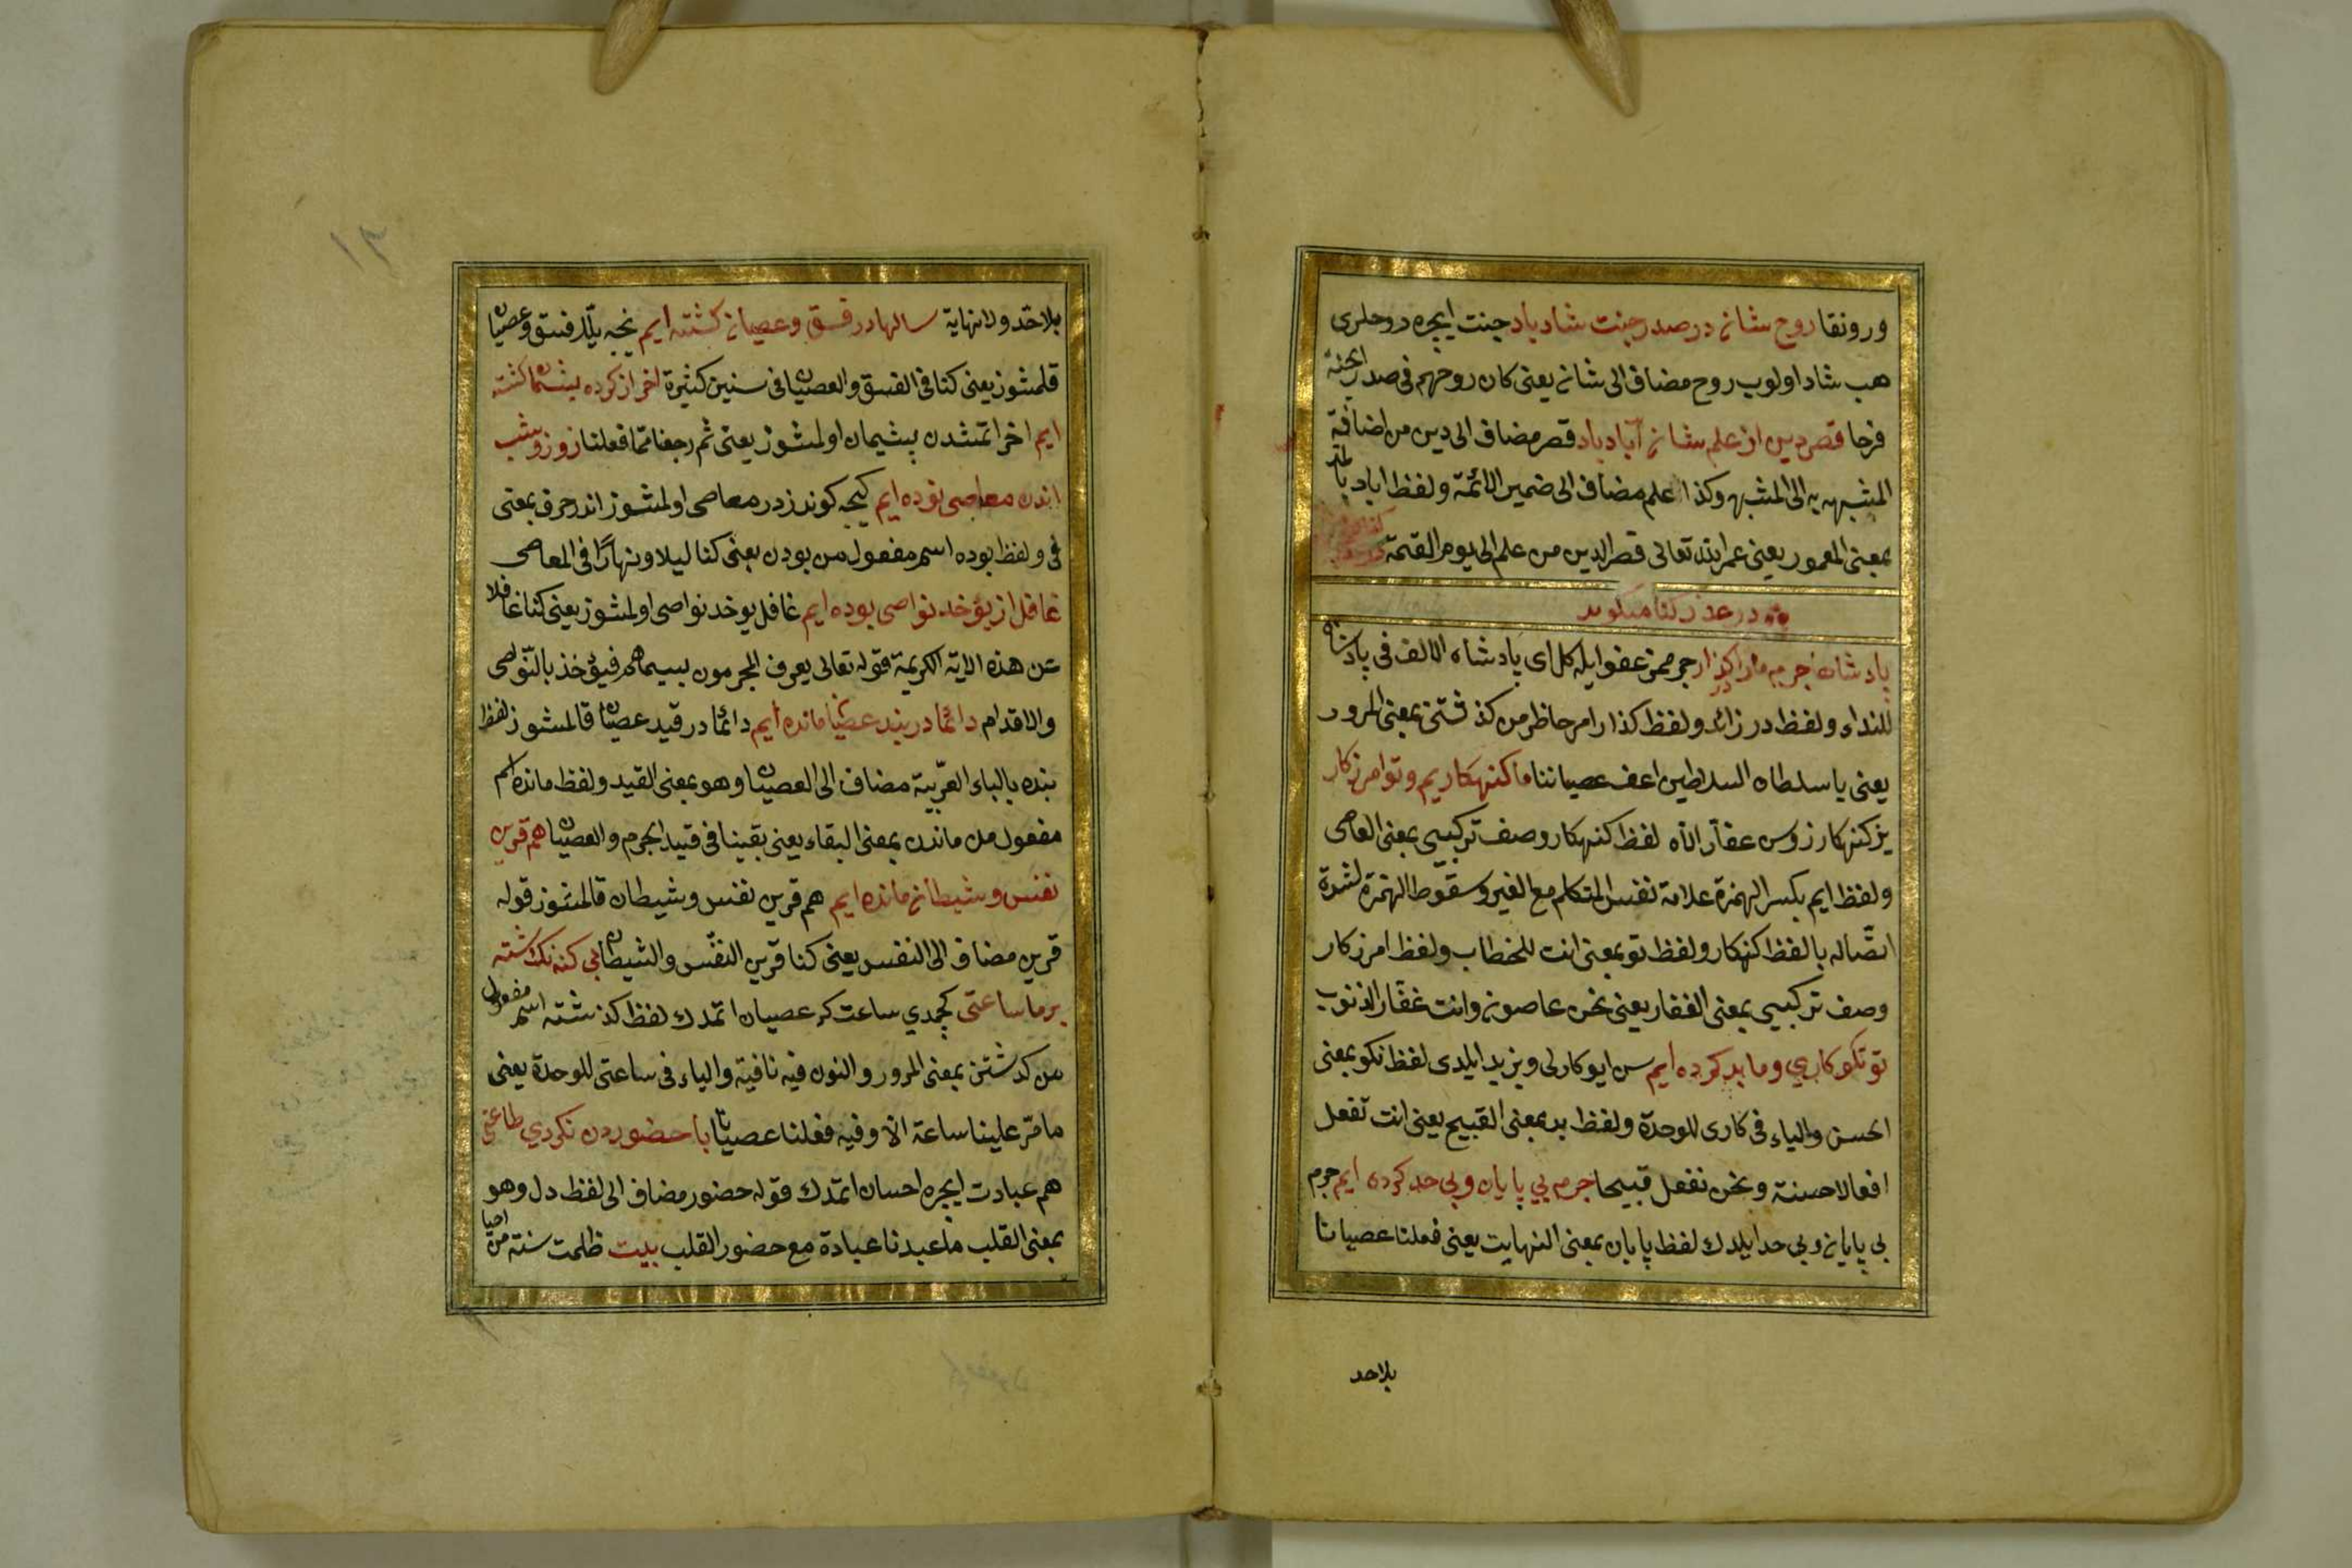 ورونقا روح شان در صدر جنت شاد باد جنت ایچره روحلری
هب شاد اولوب روح مضاف الی شان یعنی کان روحهم فی صدر الجنة
فرحا قصر دین از علم شان آباد باد قصر مضاف الی دین من اضافة
المشبهه به الی المشبهه وکذا علم مضاف الی ضمیر الائمة ولفظ اباد
بمعنی المعمور یعنی عمر الله تعالی قصر الدین من علم الی یوم القیمة
در عذر کناه میکوید
پادشاها جرم مارا در کذار جرممز عفو ایله کل ای پادشاه الالف فی پادشاها
للنداء ولفظ در زائد ولفظ کذار امر حاظر من کذشتن بمعنی المرور
یعنی یا سلطان السلاطین اعف عصیاننا ما کنهکاریم وتو امرزکار
بز کنهکارز وسن عفار الآه لفظ کنهکار وصف ترکیبی بمعنی العاصی
ولفظ ایم بکسر الهمزة علامة نفس المتکلم مع الغیر وسقوط الهمزة لشدة
اتصاله بالفظ کنهکار ولفظ تو بمعنی انت للخطاب ولفظ امرزکار
وصف ترکیبی بمعنی الغفار یعنی نحن عاصون وانت غفار الذنوب
تو نکو کاری وما بد کرده ایم سن ایو کارلی وبز بد ایلدی لفظ نکو بمعنی
الحسن والیاء فی کاری للوحدة ولفظ بد بمعنی القبیح یعنی انت تفعل
افعالا حسنة ونحن نفعل قبیحا جرم بی پایان وبی حد کرده ایم جرم
بی پایان وبی حد ایلدك لفظ پایان بمعنی النهایت یعنی فعلنا عصیانا
بلاحد
١٣
بلاحد ولانهایة سالها در فسق وعصیان کشته ایم نجه ییلدر فسق وعصیان
قلمشوز یعنی کنا فی الفسق والعصیان فی سنین کثیرة اخر از کرده پشیمان کشته
ایم اخر اتمشدن پشیمان اولمشوز یعنی ثم رجعنا مما فعلنا روز وشب
اندر معاصی بوده ایم کیجه کوندز در معاصی اولمشوز اندر حرف بمعنی
فی ولفظ بوده اسم مفعول من بودن یعنی کنا لیلا ونهارا فی المعاصی
غافل از یؤخذ نواصی بوده ایم غافل یوخذ نواصی اولمشوز یعنی کنا غافلا
عن هذه الایة الکریمة قوله تعالی یعرف المجرمون بسیماهم فیؤخذ بالنواصی
والاقدام دائما در بند عصیان مانده ایم دائما در قید عصیان قالمشوز لفظ
بنده بالباء العربیة مضاف الی العصیان وهو بمعنی القید ولفظ مانده اسم
مفعول من ماندن بمعنی البقاء یعنی بقینا فی قید الجرم والعصیان هم قرین
نفس وشیطان مانده ایم هم قرین نفس وشیطان قالمشوز قوله
قرین مضاف الی النفس یعنی کنا قرین النفس والشیطان بی کنه نکذشته
بر ما ساعتی کچمدی ساعت که عصیان اتمدك لفظ کذشته اسم مفعول
من کذشتن بمعنی المرور والنون فیه نافیة والیاء فی ساعتی للوحدة یعنی
ما مر علینا ساعة الا وفیه فعلنا عصیانا با حضور دل نکردی طاعتی
هم عبادت ایچره احسان اتمدك قوله حضور مضاف الی لفظ دل وهو
بمعنی القلب ما عبدنا عبادة مع حضور القلب بیت ظلمت سنة من احیا